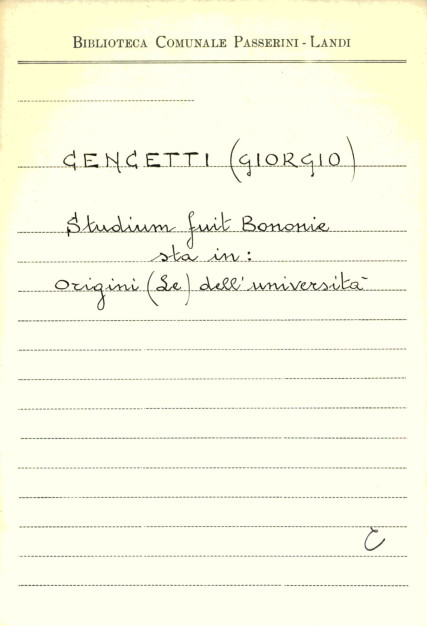 BIBLIOTECA COMUNALE PASSERINI - LANDI
CENCETTI (GIORGIO)
Studium fuit Bononie
sta in:
Origini (Le) dell'università
C